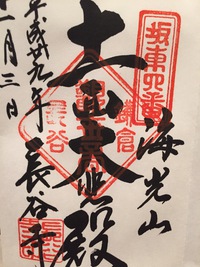 坂東四番
海光山
鎌倉
十一面大悲殿
長谷
長谷寺
平成廿九年
十一月三日